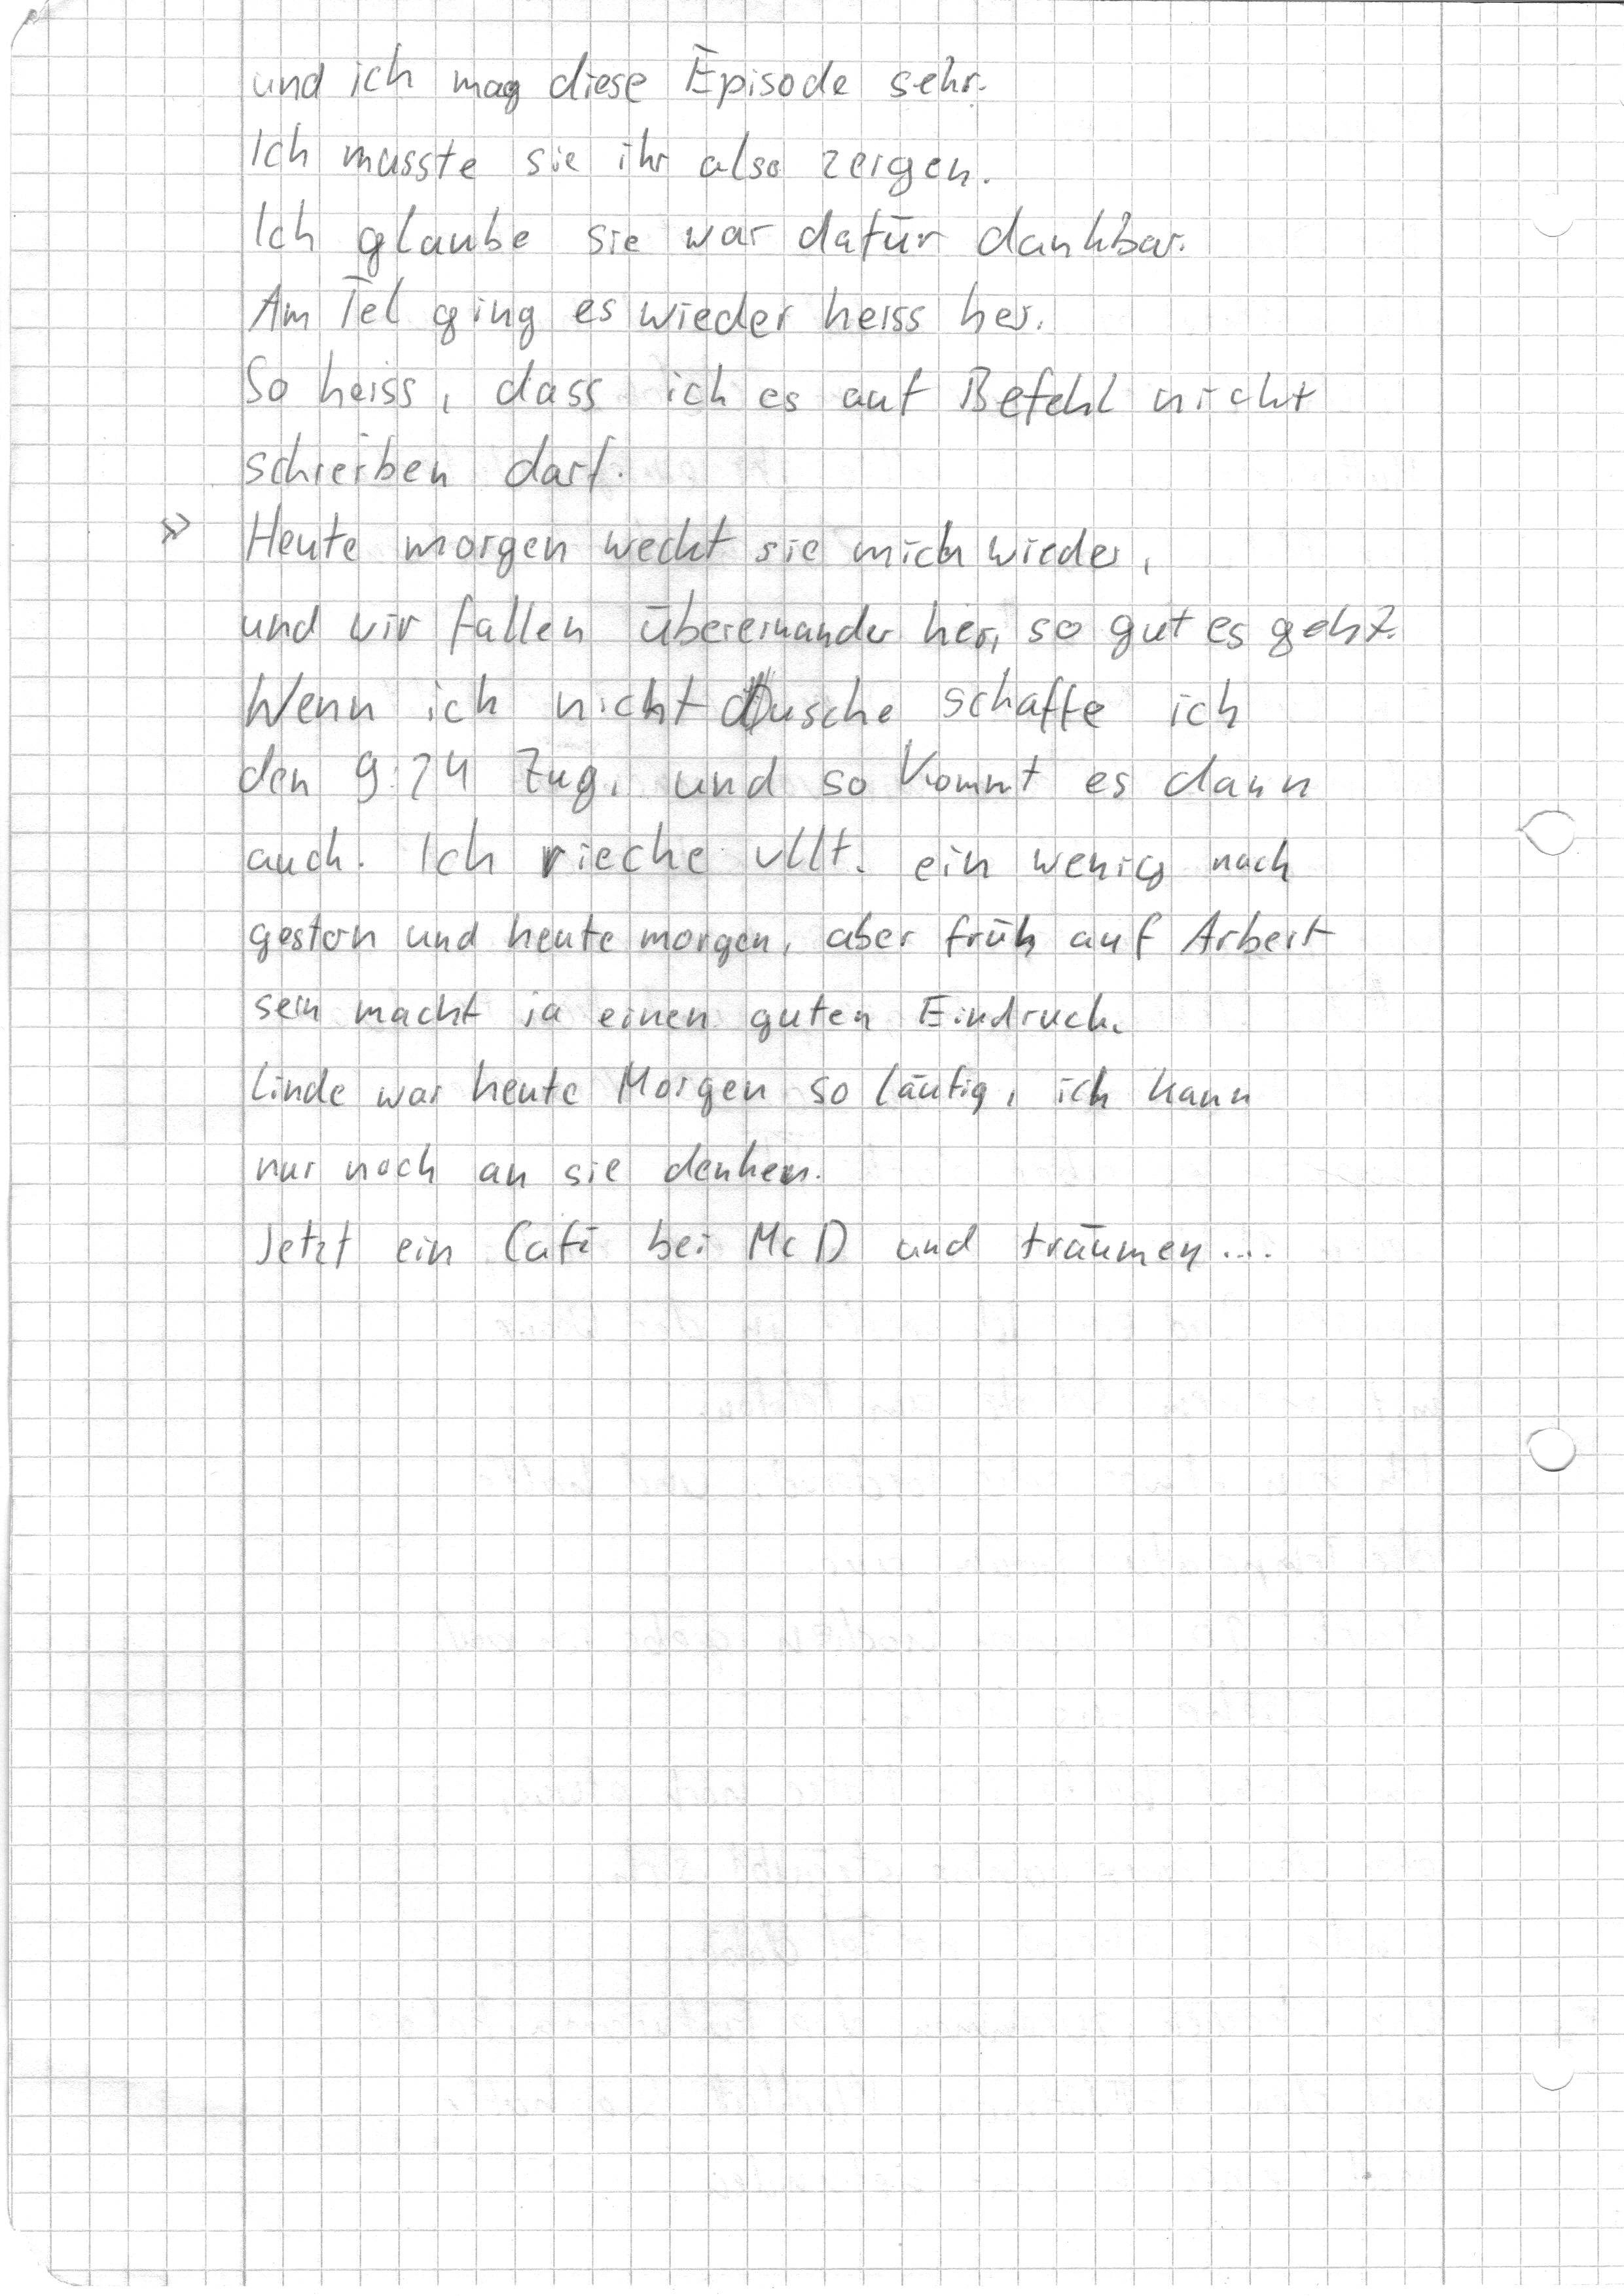 und ich mag diese Episode sehr.
Ich musste sie ihr also zeigen.
Ich glaube sie war dafür dankbar.
Am Tel ging es wieder heiss her.
So heiss, dass ich es auf Befehl nicht
schreiben darf.
Heute morgen weckt sie mich wieder,
und wir fallen übereinander her, so gut es geht.
Wenn ich nicht Dusche schaffe ich
den 9:24 Zug, und so kommt es dann
auch. Ich rieche vllt. ein wenig nach
gestern und heute morgen, aber früh auf Arbeit
sein macht ja einen guten Eindruck.
Linde war heute Morgen so läufig, ich kann
nur noch an sie denken.
Jetzt ein Café bei McD und träumen...